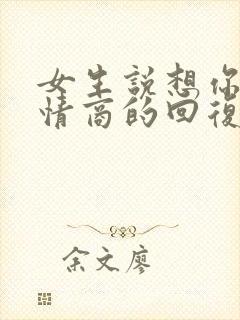 女生說想你
情商的回復
余文廖